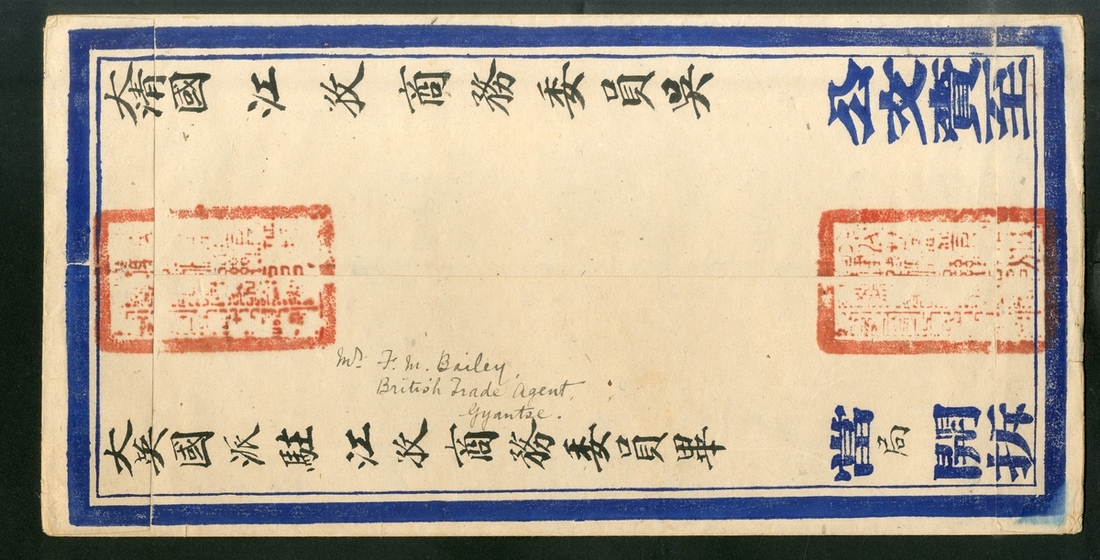 大清國江孜商務委員吳
公文賫至
Mr. F. M. Bailey,
British Trade Agent,
Gyantse.
大英國派駐江孜商務委員畢
當局開拆